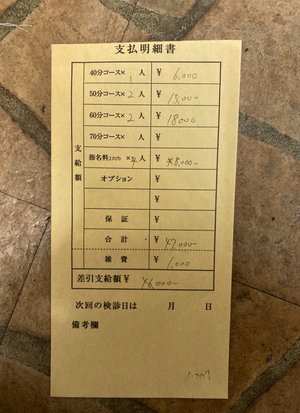 支払明細書
支給額
40分コース× 1 人 ¥ 6,000
50分コース× 2 人 ¥ 15,000
60分コース× 2 人 ¥ 18,000
70分コース× 人 ¥
指名料2000 ×4人 ¥ ¥8,000-
オプション ¥
¥
保証 ¥
合計 ¥ 47,000-
雑費 ¥ 1,000
差引支給額 ¥ 46,000-
次回の検診日は 月 日
備考欄